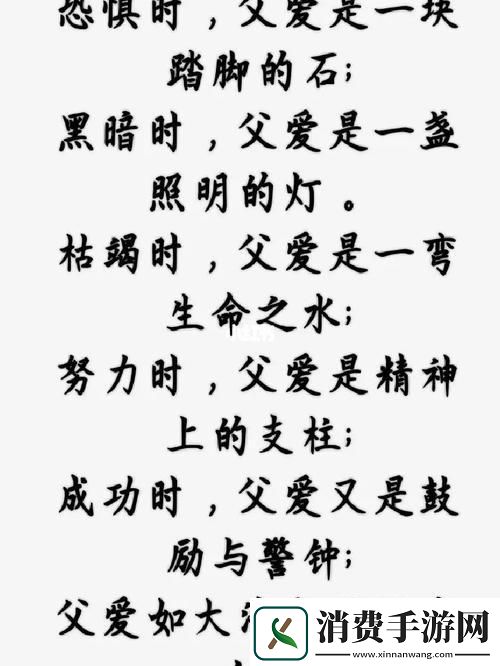 恐惧时，父爱是一块
踏脚的石；
黑暗时，父爱是一盏
照明的灯。
枯竭时，父爱是一弯
生命之水；
努力时，父爱是精神
上的支柱；
成功时，父爱又是鼓
励与警钟；
父爱如大海
消费手游网
www.xinnanwang.com